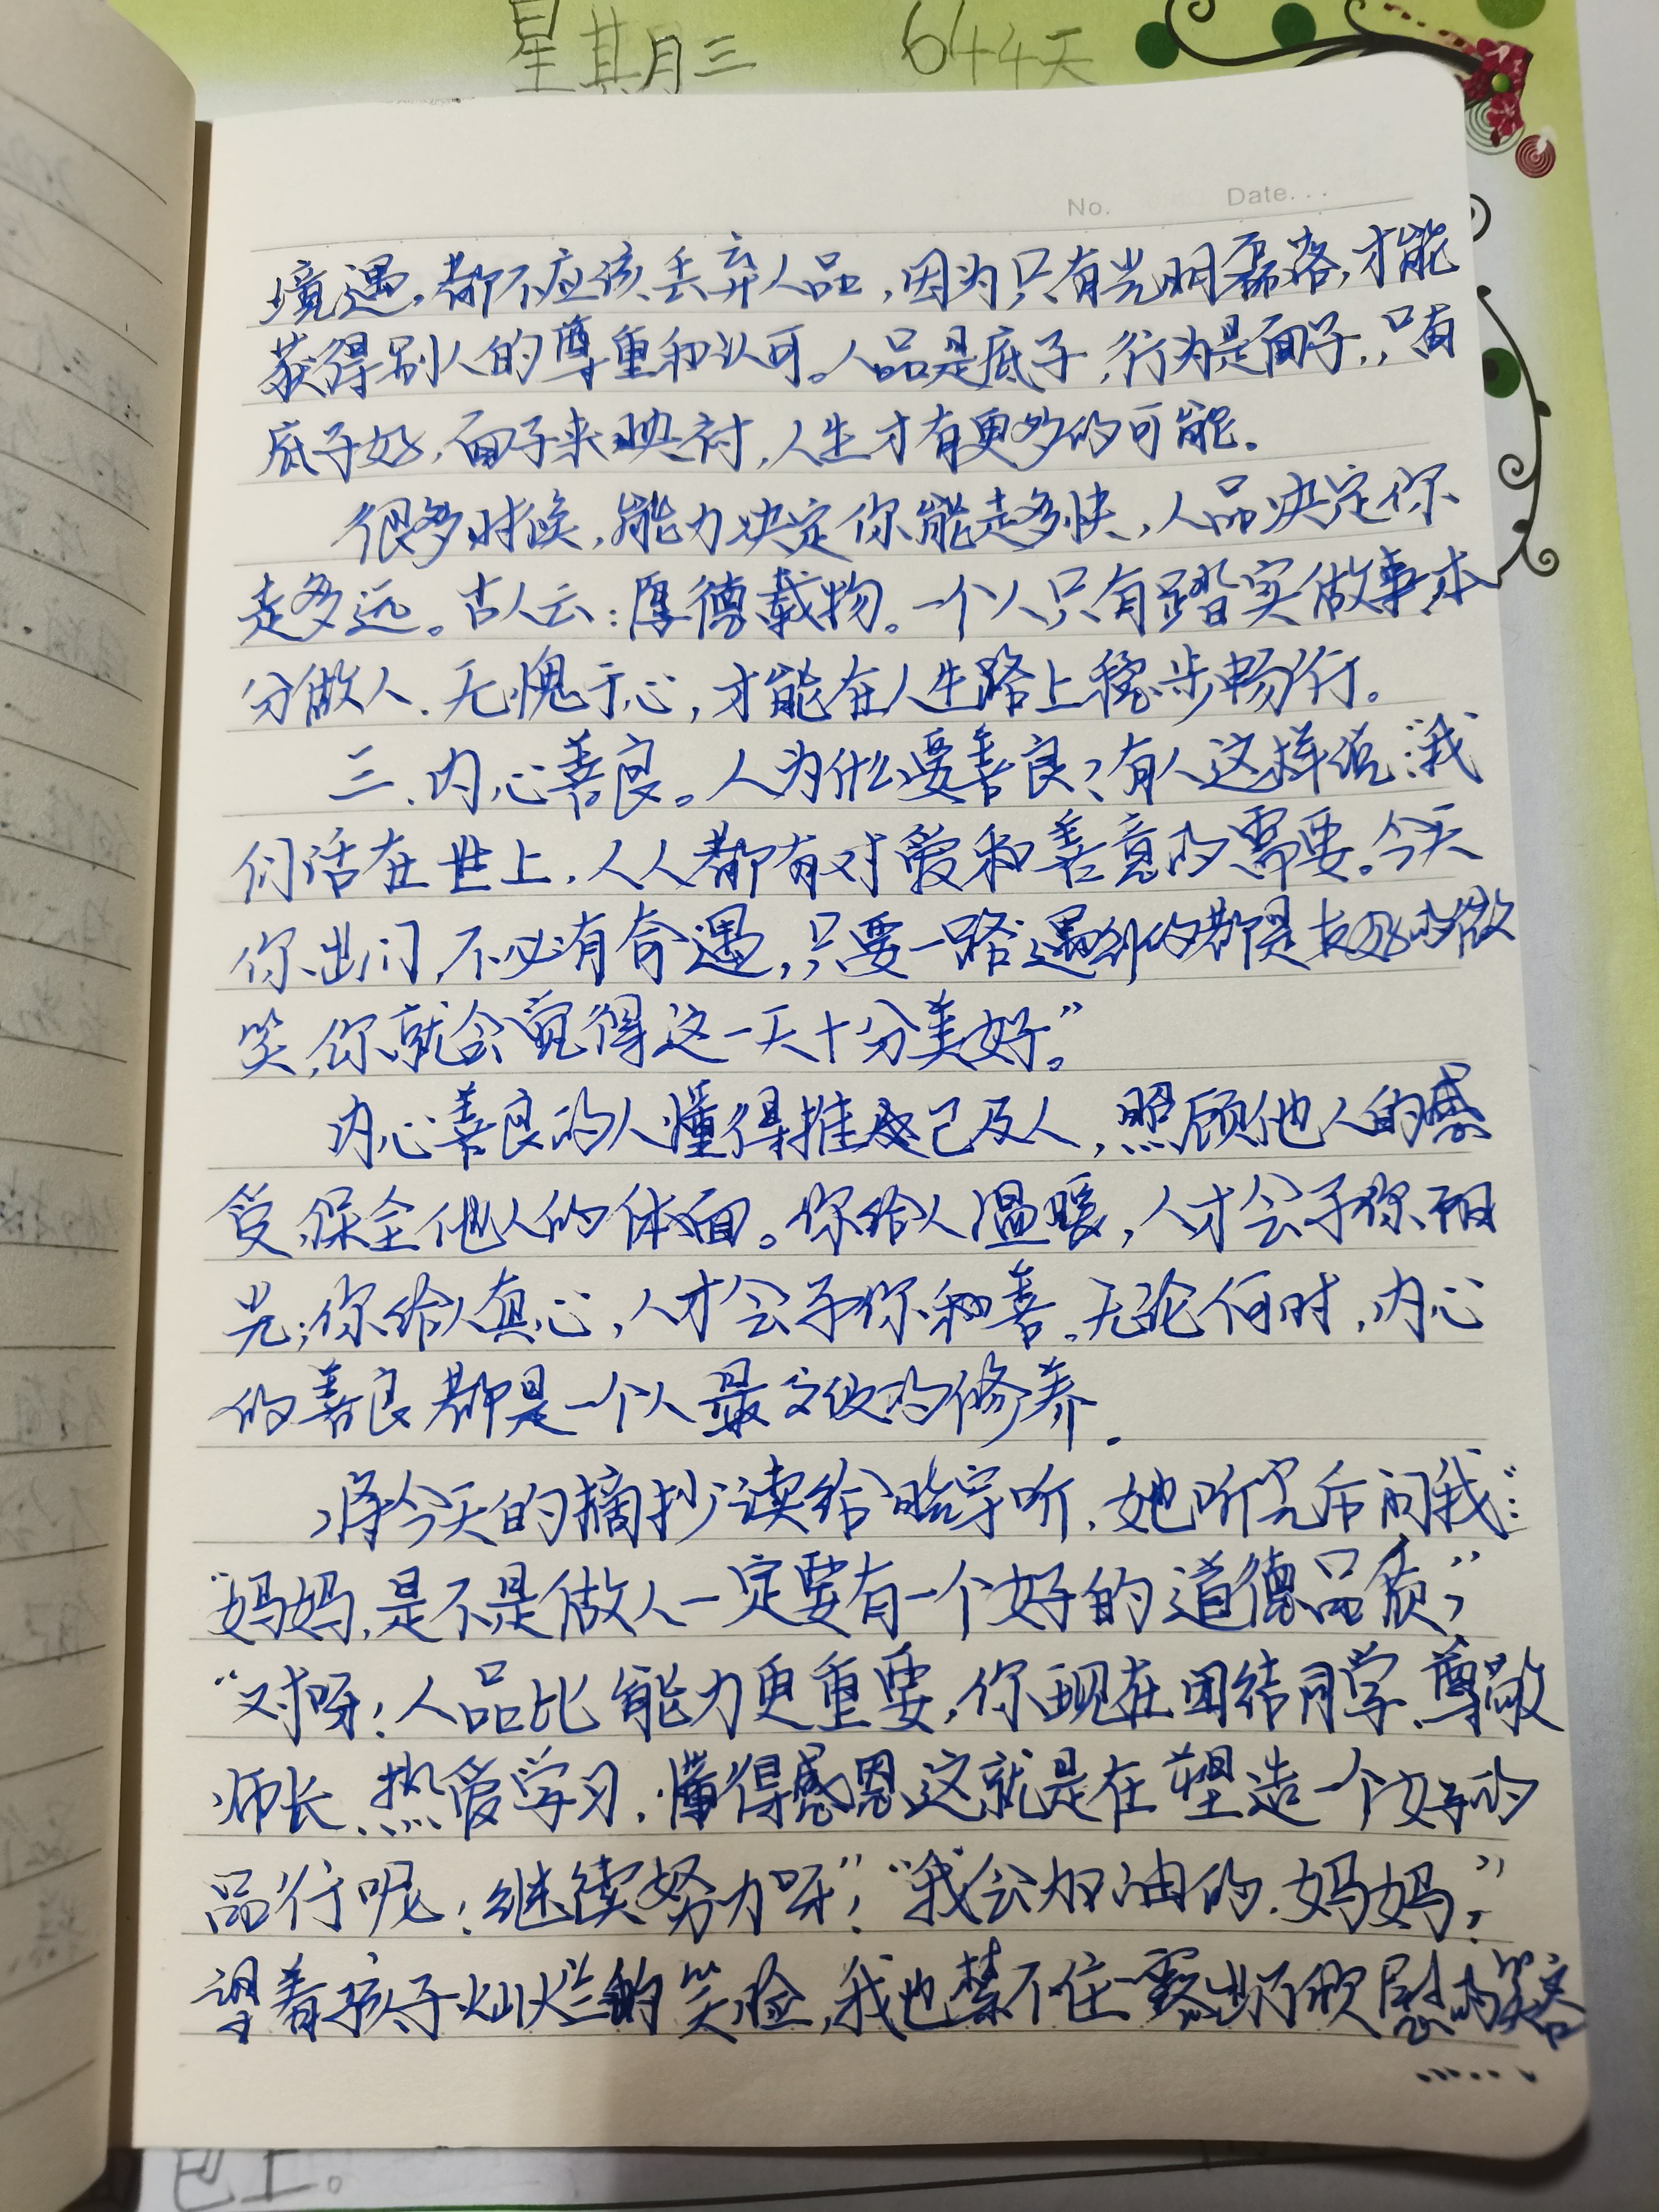 星其月三 644天
No. Date...
境遇,都不应该丢弃人品,因为只有光明磊落,才能
获得别人的尊重和认可。人品是底子,行为是面子,只有
底子好,面子来映衬,人生才有更多的可能。
很多时候,能力决定你能走多快,人品决定你
走多远。古人云:厚德载物。一个人只有踏实做事、本
分做人、无愧于心,才能在人生路上稳步畅行。
三、内心善良。人为什么要善良?有人这样说:“我
们活在世上,人人都有对爱和善意的需要。今天
你出门,不必有奇遇,只要一路遇到的都是友好的微
笑,你就会觉得这一天十分美好。”
内心善良的人懂得推己及人,照顾他人的感
受,保全他人的体面。你给人温暖,人才会予你阳
光;你给人真心,人才会予你和善。无论何时,内心
的善良都是一个人最高级的修养。
将今天的摘抄读给听,她听完后问我:
“妈妈,是不是做人一定要有一个好的道德品质?”
“对呀!人品比能力更重要,你现在团结同学、尊敬
师长、热爱学习、懂得感恩这就是在塑造一个好的
品行呢!继续努力呀!”“我会加油的,妈妈。”
望着孩子灿烂的笑脸,我也禁不住露出了欣慰的笑容
······
包上。